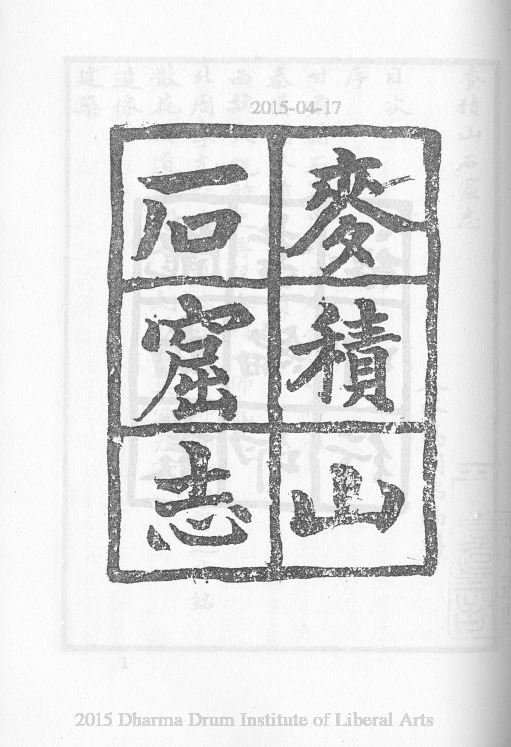 2015-04-17
麥積山
石窟志
2015 Dharma Drum Institute of Liberal Arts